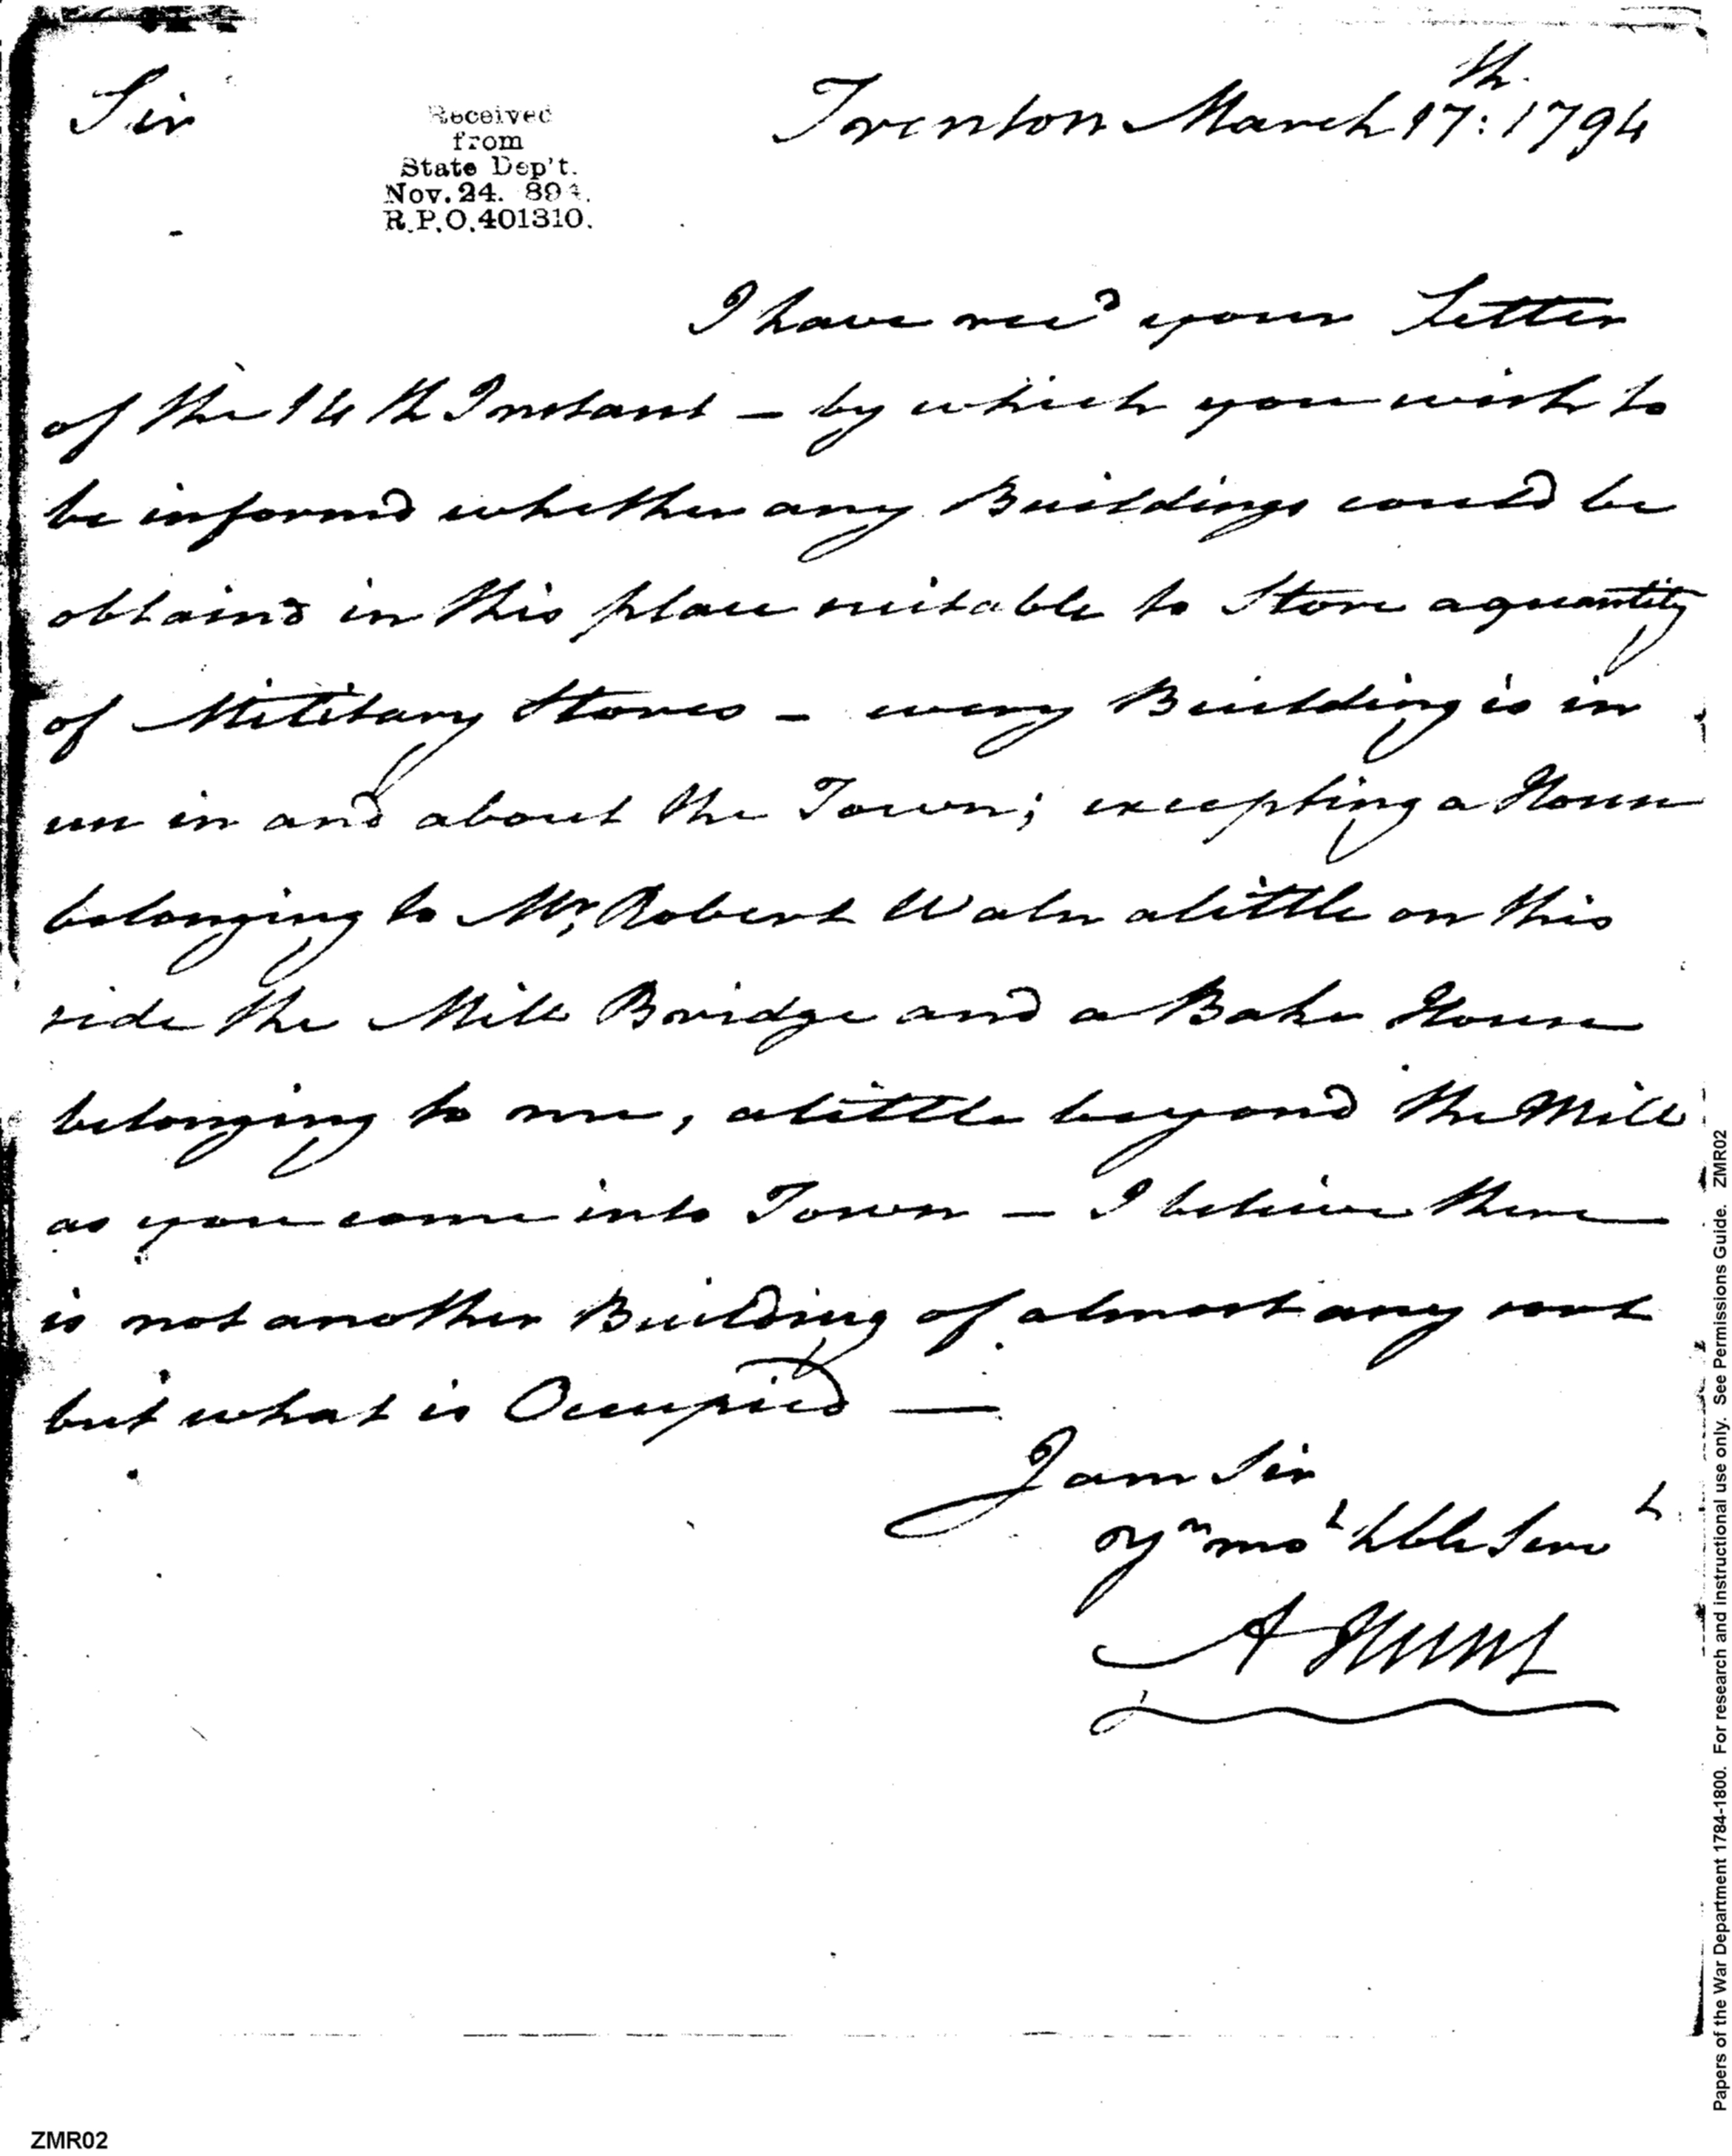 Sir
Received
from
State Dep't.
Nov. 24. 894.
R.P.O. 401310.
Trenton March 17th: 1794
I have recd your Letter
of the 14th Instant - by which you wish to
be informd whether any Buildings could be
obtaind in this place suitable to Store a quantity
of Military Stores - every Building is in
use in and about the Town; excepting a House
belonging to Mr. Robert Waln a little on this
side the Mill Bridge and a Bake House
belonging to me, a little beyond the Mill
as you come into Town - I believe there
is not another Building of almost any sort
but what is Occupied —
I am Sir
Yr mot hble Servt
A Hunt
Papers of the War Department 1784-1800. For research and instructional use only. See Permissions Guide. ZMR02
ZMR02